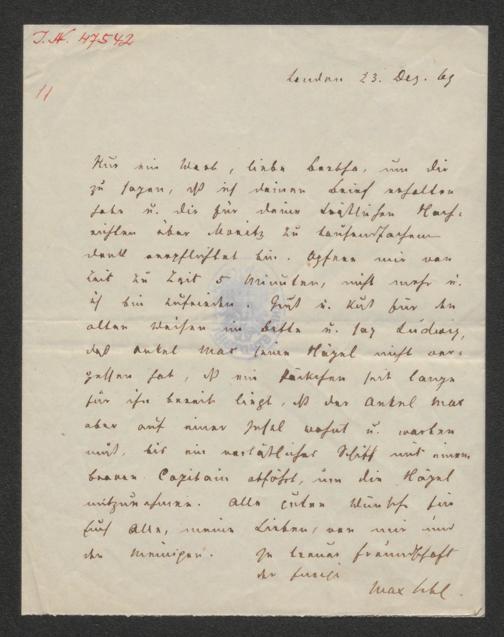 I. N. 47542
11
London 23. Dez. 69
Nur ein Wort, liebe Bertha, um dir
zu sagen, dß ich deinen Brief erhalten
habe u. dir für deine Nach-
richten über Moritz zu tausendfachem
Dank verpflichtet bin. Opfere mir von
Zeit zu Zeit 5 Minuten, nicht mehr u.
ich bin zufrieden. Gruß u. Kuß für den
alten Weisen im Bette u. sag Ludwig,
daß Onkel Max seine Vögel nicht ver-
gessen hat, dß ein Käckchen seit lange
für ihn bereit liegt, dß der Onkel Max
aber auf einer Insel wohnt u. warten
muß, bis ein verläßliches Schiff mit einem
braven Capitain abfährt, um die Vögel
mitzunehmen. Alle guten Wünsche für
Euch Alle, meine Lieben, von mir und
den Meinigen. In treuer Freundschaft
der Eurige
Max